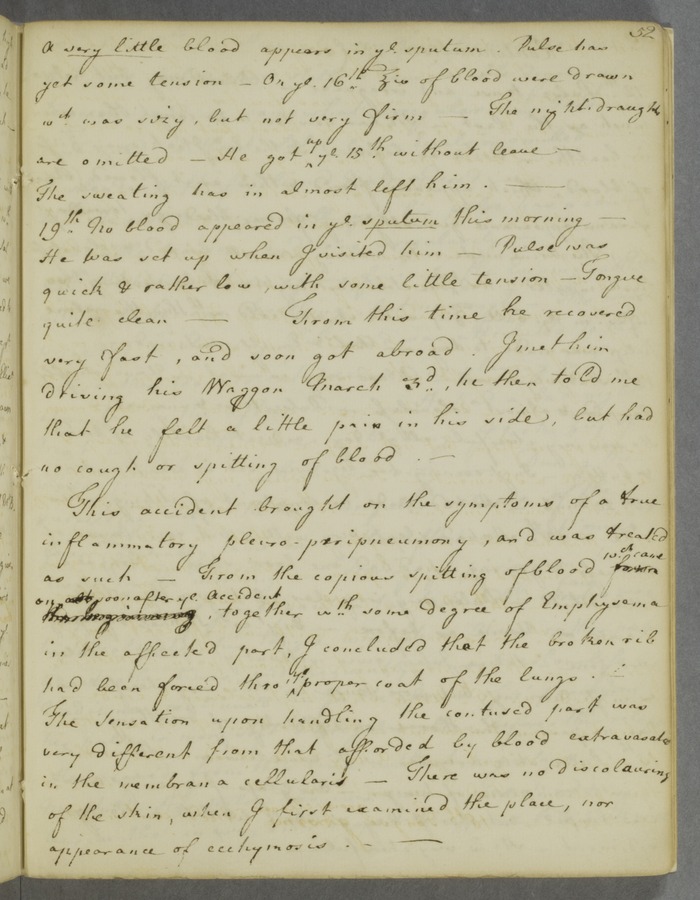 52
A very little blood appears in ye. sputum. Pulse has
yet some tension – On ye. 16th ℥iv of blood were drawn
wch was sizy, but not very firm — The night-draughts
are omitted – He got up ye 15th without leave –
The sweating has in almost left him. —
19th No blood appeared in ye sputum this morning –
He was set up when I visited him – Pulse was
quick & rather low, with some little tension – Tongue
quite clean — From this time he recovered
very fast, and soon got abroad. I met him
driving his Waggon March 3d, he then told me
that he felt a little pain in his side, but had
no cough or spitting of blood. –
This accident brought on the symptoms of a true
inflammatory pleuro-peripneumony, and was treated
as such – From the copious spitting of blood wch came
on soon after ye. Accident, together wth some degree of Emphysema
in the affected part, I concluded that the broken rib
had been forced thro' ye proper coat of the lungs. –
The sensation upon handling the contused part was
very different from that afforded by blood extravasated
in the membrana cellularis – There was no discolouring
of the skin, when I first examined the place, nor
appearance of ecchymosis. – —